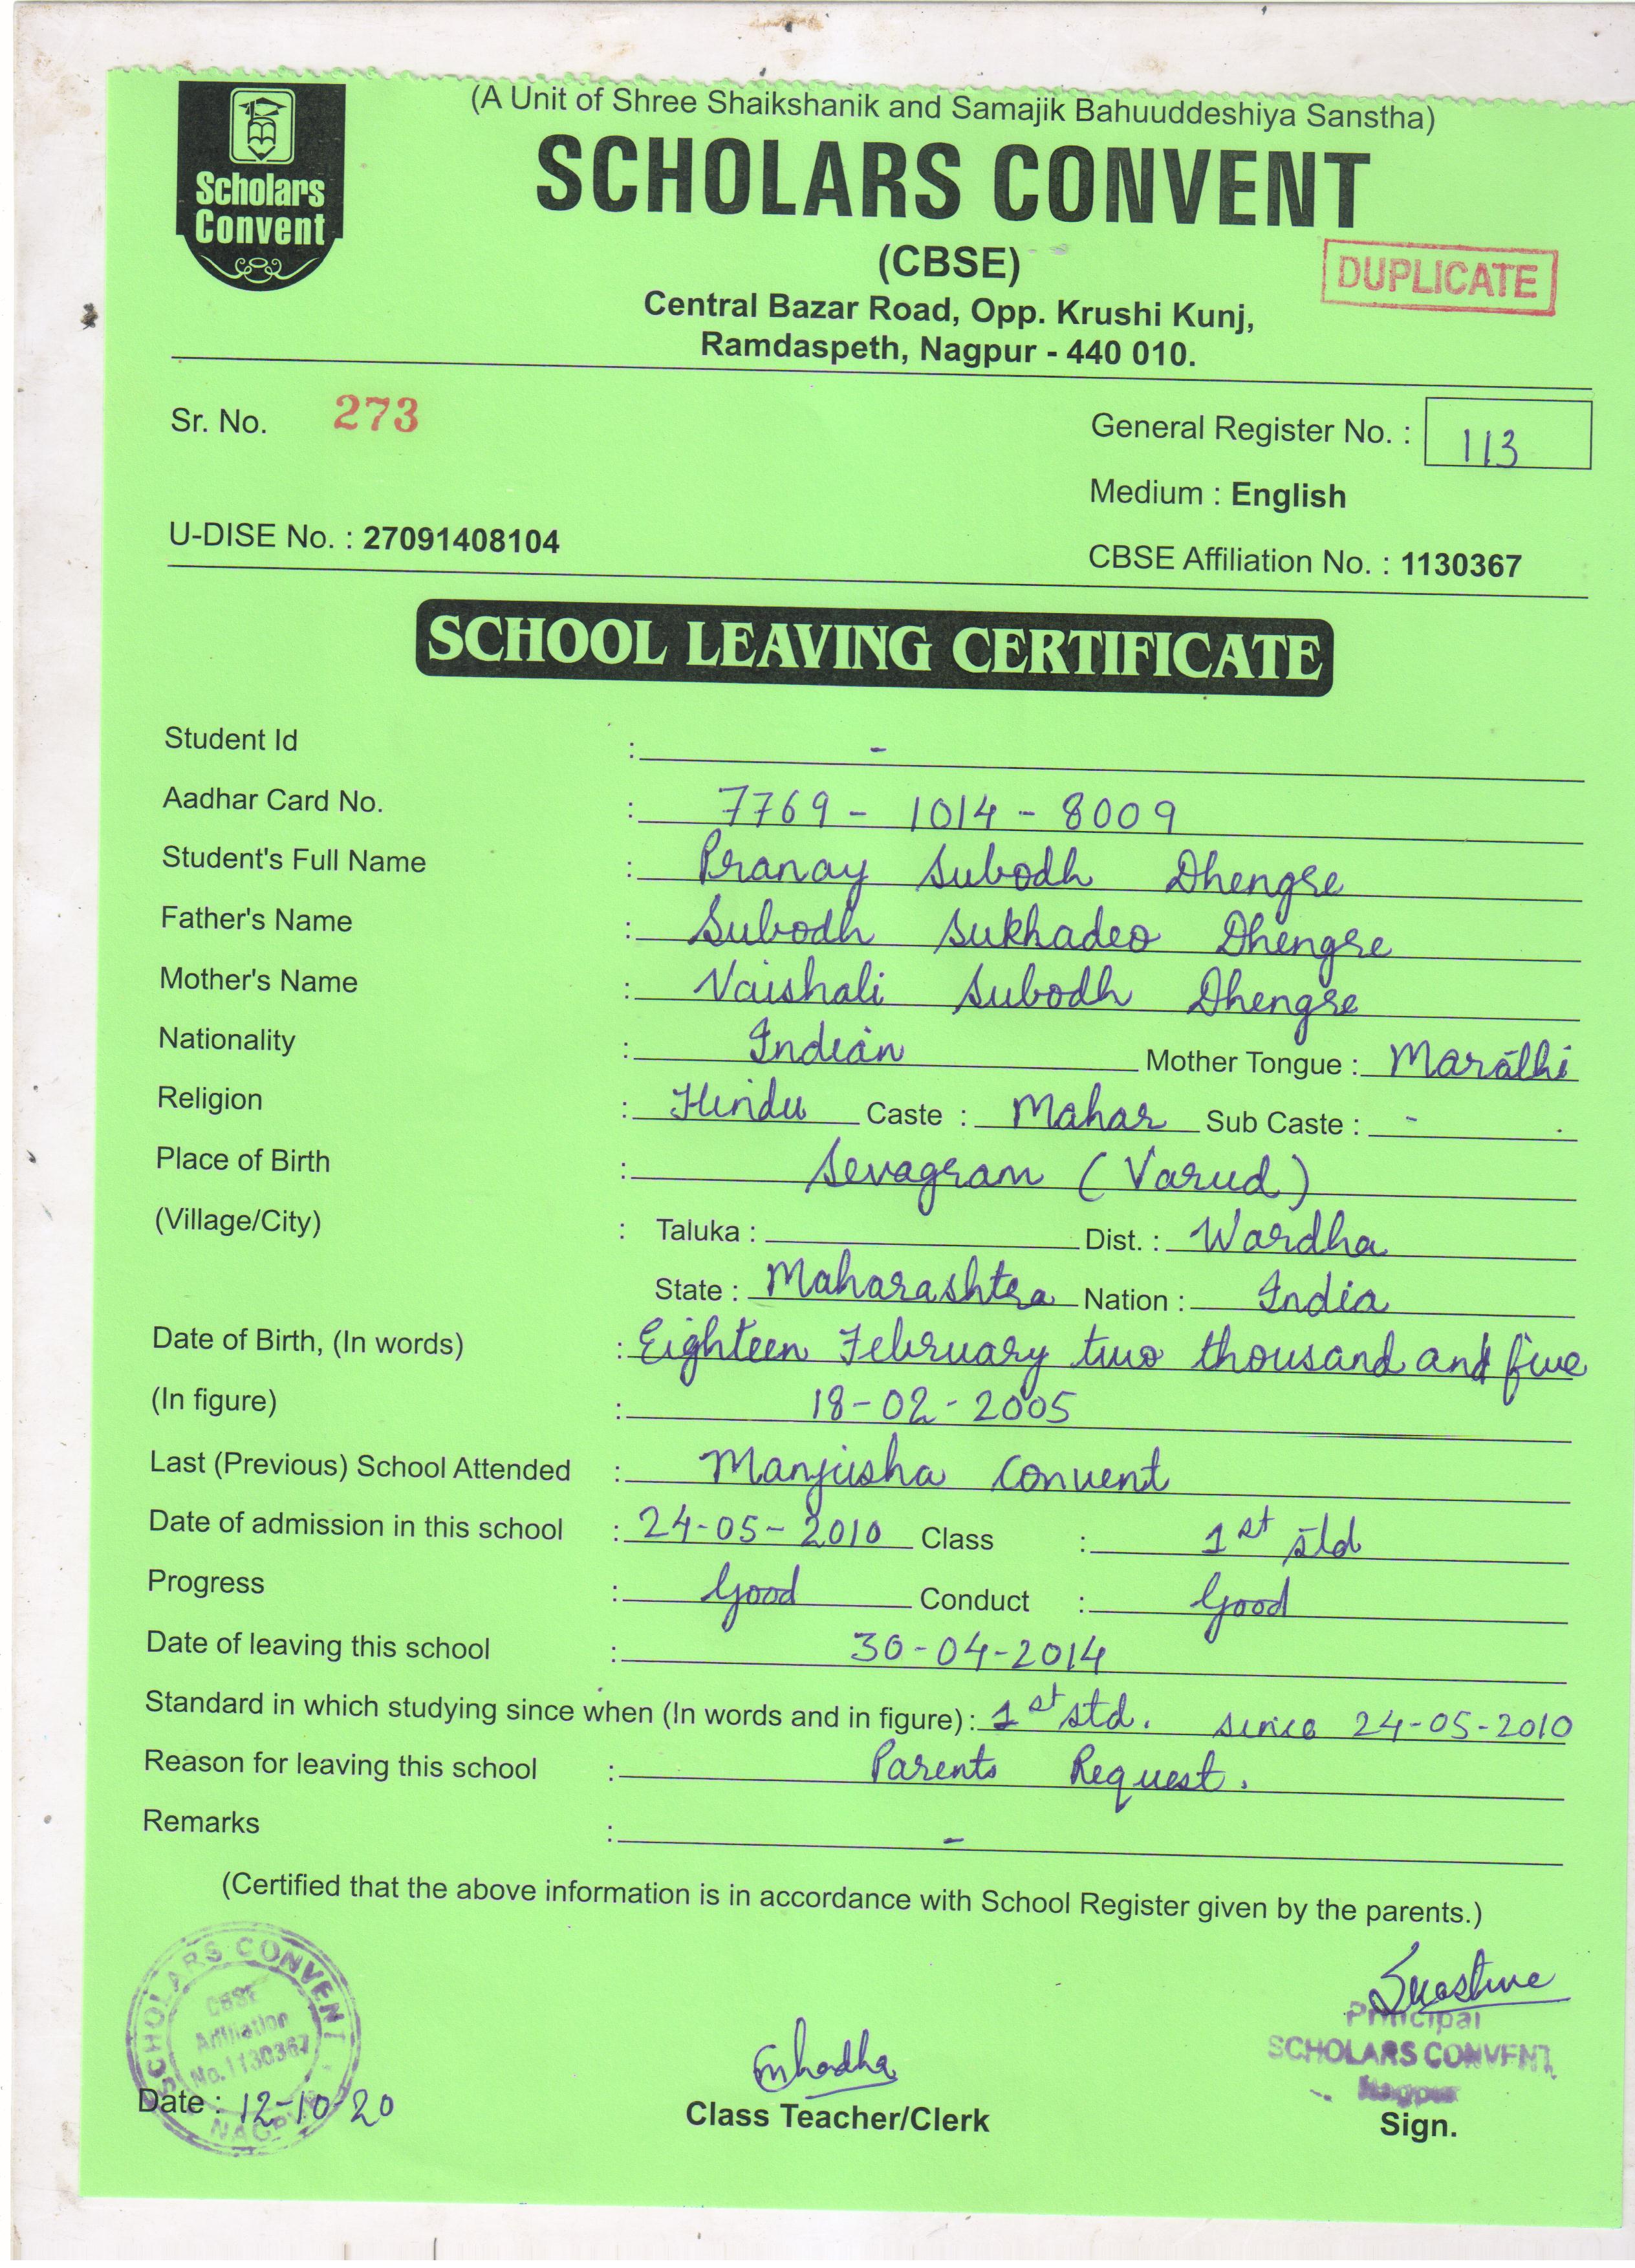 (A Unit of Shree Shaikshanik and Samajik Bahuuddeshiya Sanstha)
Scholars
Convent
SCHOLARS CONVENT
(CBSE)
DUPLICATE
Central Bazar Road, Opp. Krushi Kunj,
Ramdaspeth, Nagpur - 440 010.
Sr. No. 273
General Register No. : 113
Medium : English
U-DISE No. : 27091408104
CBSE Affiliation No. : 1130367
SCHOOL LEAVING CERTIFICATE
Student Id : -
Aadhar Card No. : 7769 - 1014 - 8009
Student's Full Name : Pranay Subodh Dhengre
Father's Name : Subodh Sukhadeo Dhengre
Mother's Name : Vaishali Subodh Dhengre
Nationality : Indian Mother Tongue : Marathi
Religion : Hindu Caste : Mahar Sub Caste : -
Place of Birth : Sevagram (Varud)
(Village/City) : Taluka : Dist. : Wardha
State : Maharashtra Nation : India
Date of Birth, (In words) : Eighteen February two thousand and five
(In figure) : 18-02-2005
Last (Previous) School Attended : Manjusha Convent
Date of admission in this school : 24-05-2010 Class : 1st std
Progress : Good Conduct : Good
Date of leaving this school : 30-04-2014
Standard in which studying since when (In words and in figure) : 1st std. since 24-05-2010
Reason for leaving this school : Parents Request.
Remarks : -
(Certified that the above information is in accordance with School Register given by the parents.)
SCHOLARS CONVENT
CBSE
Affiliation
No. 1130367
NAGPUR
Date : 12-10-20
Class Teacher/Clerk
Principal
SCHOLARS CONVENT
Nagpur
Sign.